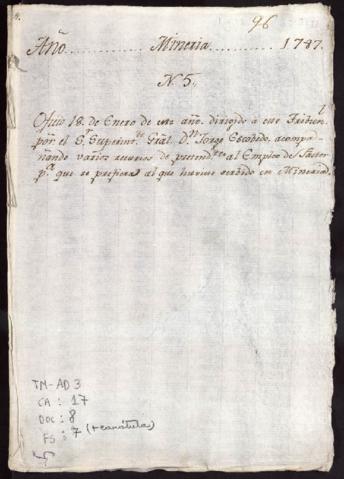 96
Año ........... Mineria ........... 1787.
N. 5.
Oficio 18. de Enero de este año. dirigido à este Tribun.l
por el S.r Superint.te Gral. D.n Jorge Escobedo, acompa-
ñando varios recursos de pretend.tes al Empleo de
p.a que se prefiera al que huviese servido en Mineria.
TM-AD 3
CA : 17
DOC : 8
FS : 7 (+ carátula)